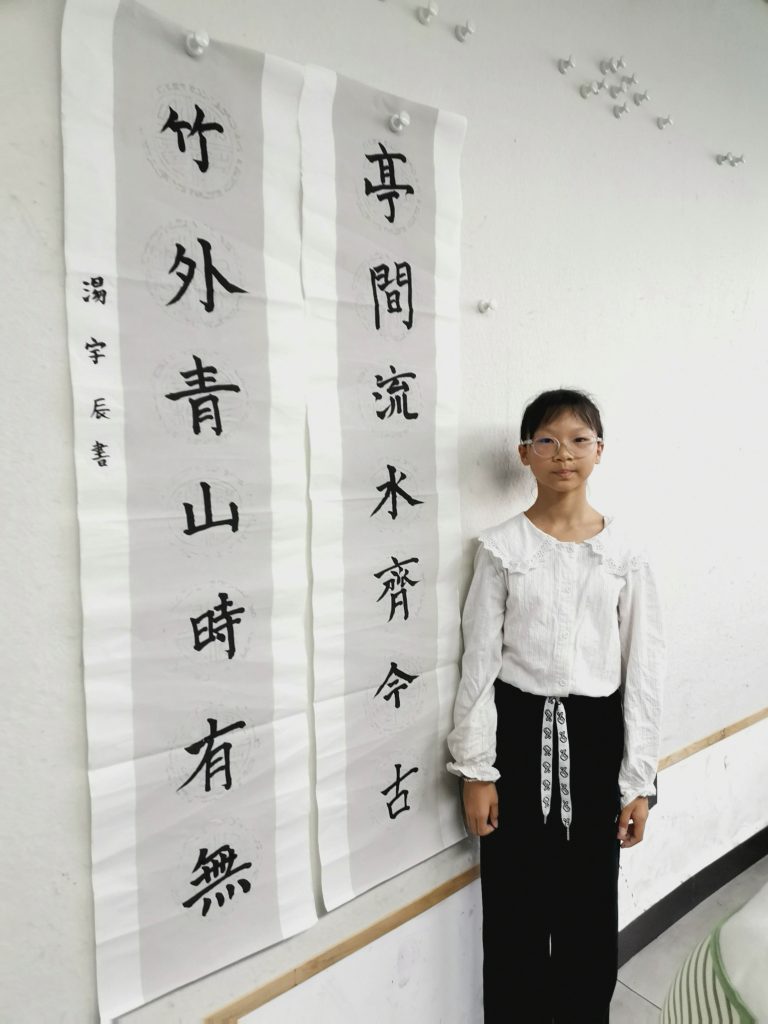 亭間流水齊今古
竹外青山時有無
湯宇辰書